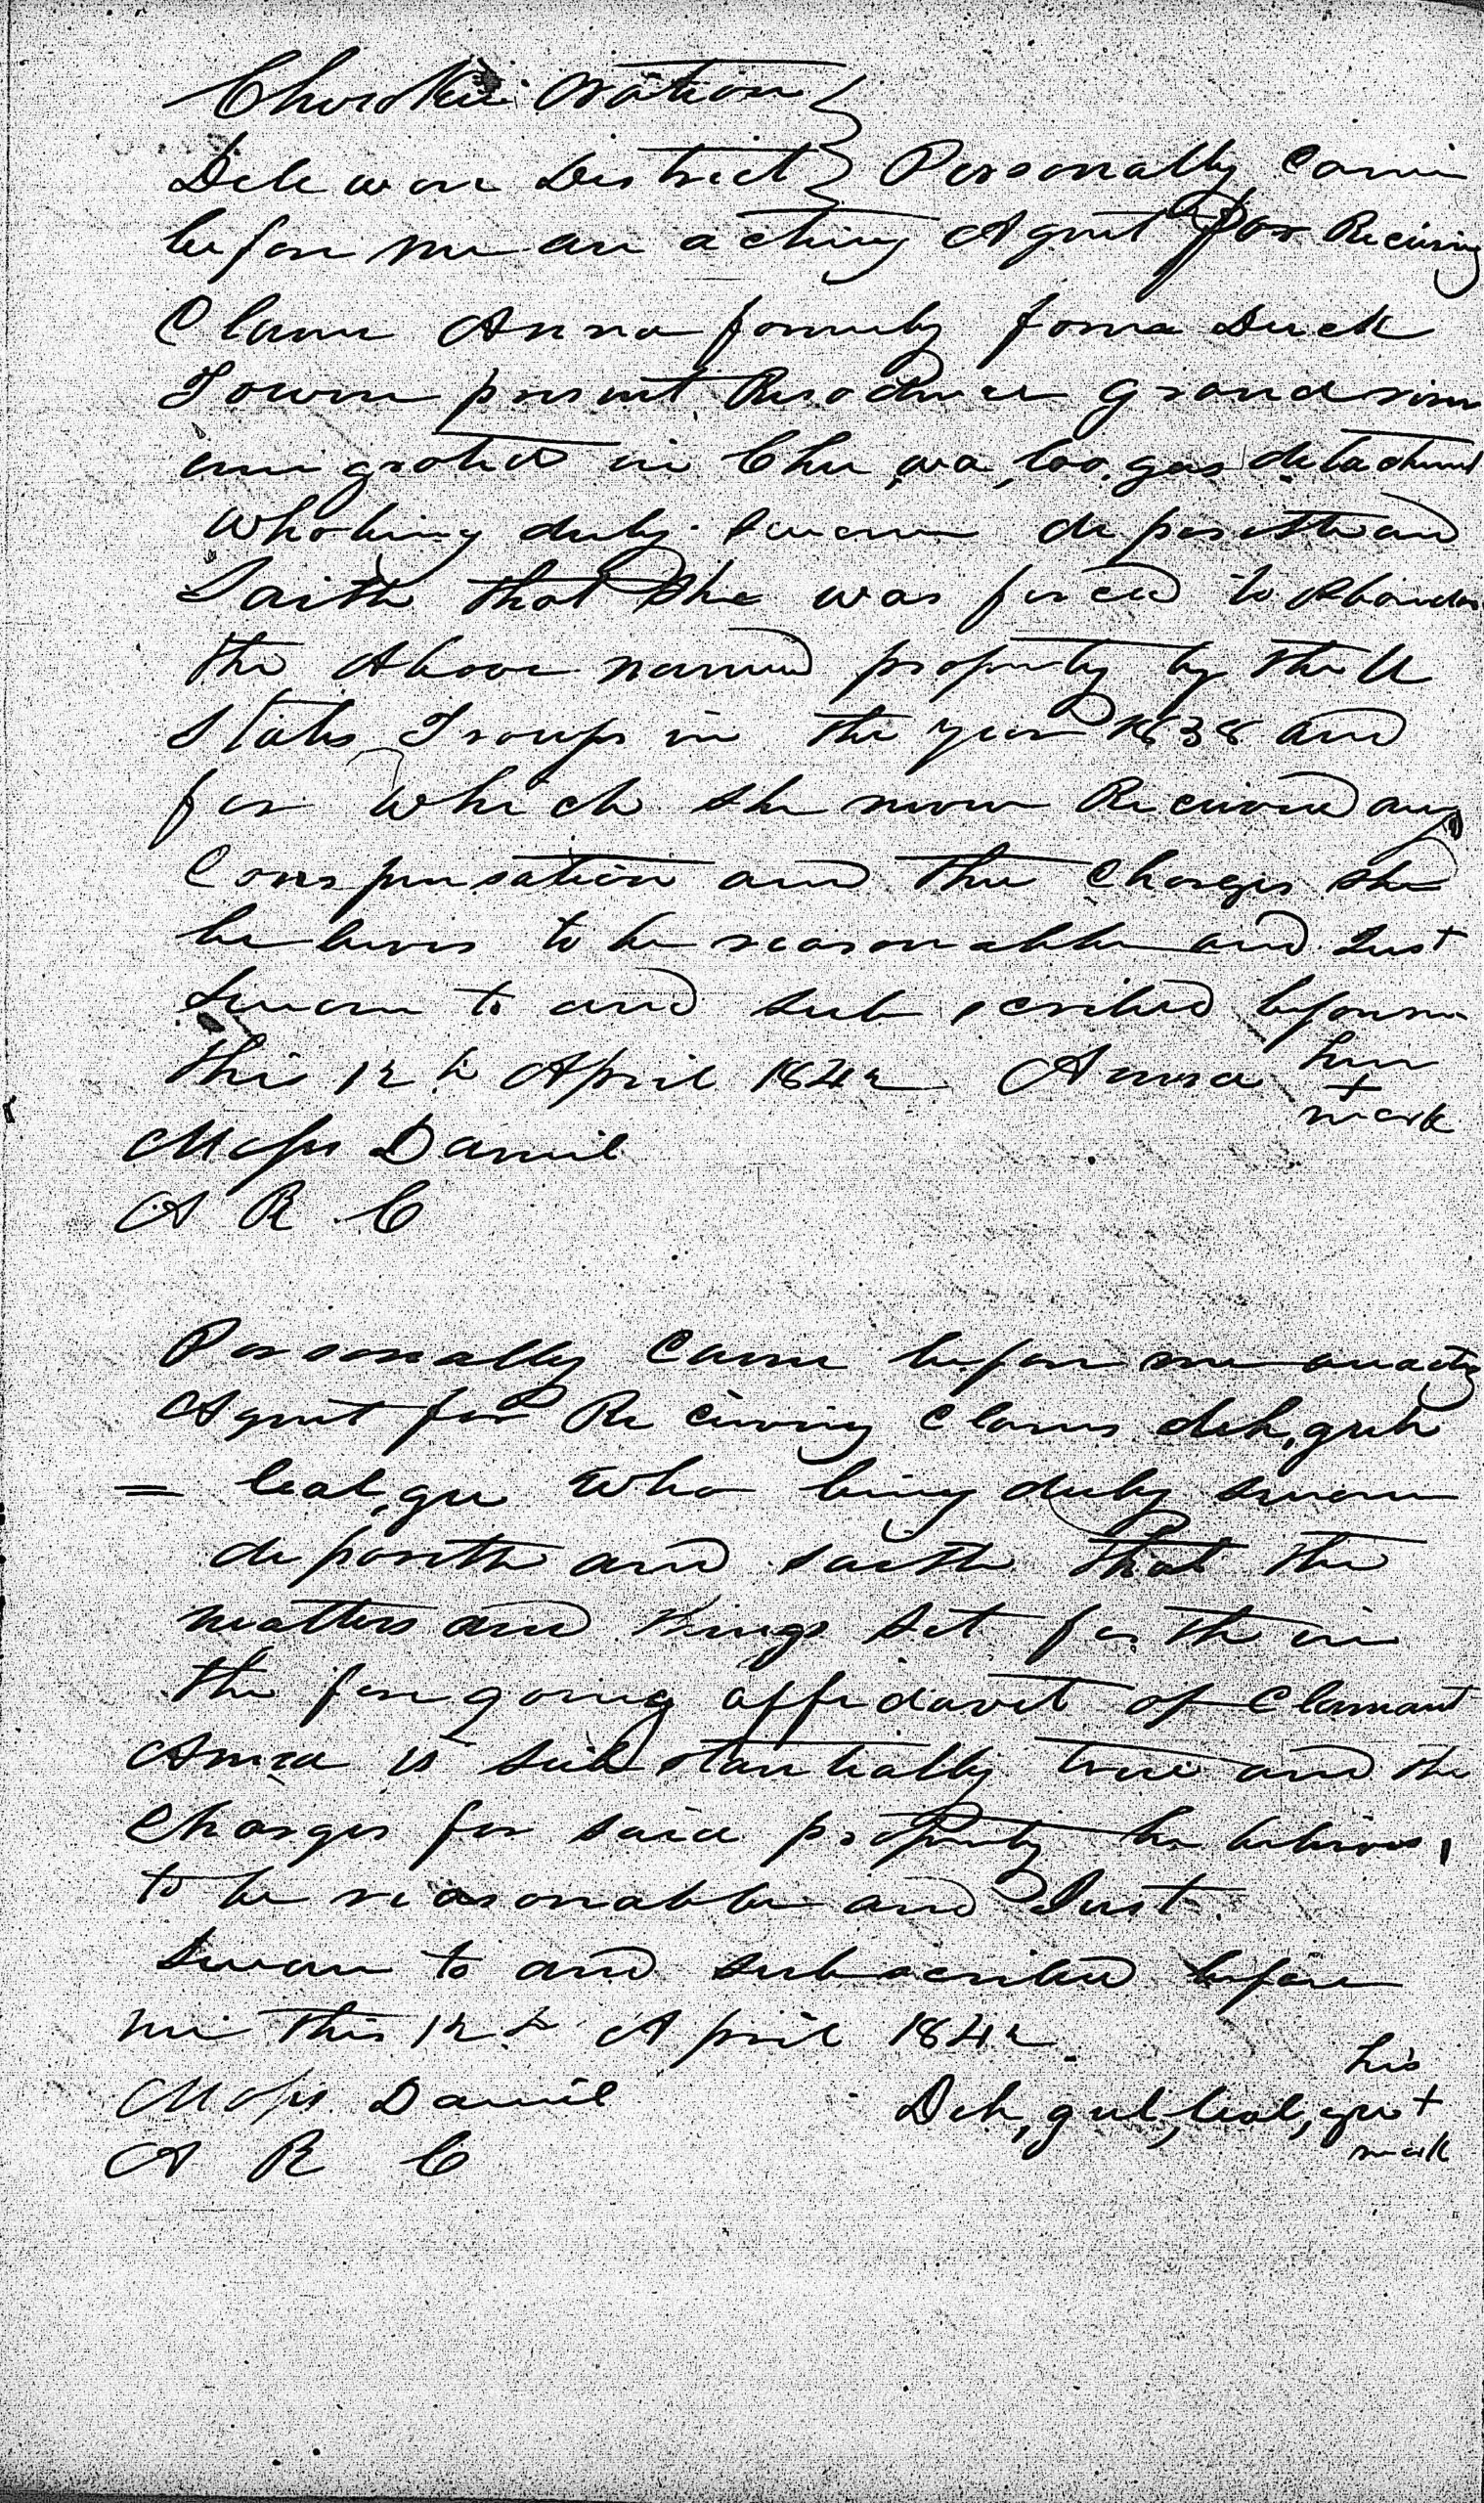 Cherokee Nation
Delaware District Personally Came
before me an acting Agent for Receiving
Claims Anna formerly from Duck
Town present Residence grand river
emigrated in Chu,wa,loo,gas detachment
who being duly sworn deposeth and
Saith that She was forced to Abandon
the Above named property by the U
States Troups in the year 1838 and
for which she never Received any
Compensation and the Charges she
believes to be reasonable and Just
Sworn to and sub scribed before me
this 12th April 1842 Anna her
+
mark
Moses Daniel
A R C
Personally Came before me an acting
Agent for Receiving Claims deh,gul
= leal,gu who being duly sworn
deposeth and saith that the
matters and things set forth in
the fore going affidavit of Clamant
Anna is substantially true and the
Charges for said property he believes
to be reasonable and Just.
Sworn to and subscribed before
me this 12th April 1842.
his
Moses Daniel Deh,gul,leal,gu +
mark
A R C